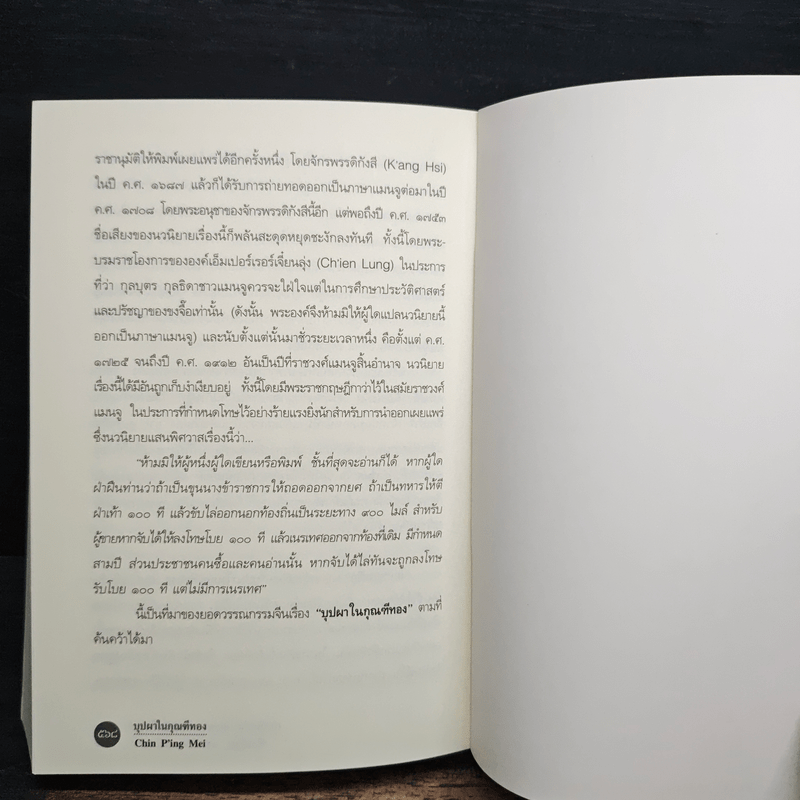 ราชานุมัติให้พิมพ์เผยแพร่ได้อีกครั้งหนึ่ง โดยจักรพรรดิกังสี (K'ang Hsi)
ในปี ค.ศ. ๑๖๘๗ แล้วก็ได้รับการถ่ายทอดออกเป็นภาษาแมนจูต่อมาในปี
ค.ศ. ๑๗๐๘ โดยพระอนุชาของจักรพรรดิกังสีนี้อีก แต่พอถึงปี ค.ศ. ๑๗๕๓
ชื่อเสียงของนวนิยายเรื่องนี้ก็พลันสะดุดหยุดชะงักลงทันที ทั้งนี้โดยพระ-
บรมราชโองการขององค์เอ็มเปอร์เรอร์เจี๋ยนลุ่ง (Ch'ien Lung) ในประการ
ที่ว่า กุลบุตร กุลธิดาชาวแมนจูควรจะใฝ่ใจแต่ในการศึกษาประวัติศาสตร์
และปรัชญาของขงจื๊อเท่านั้น (ดังนั้น พระองค์จึงห้ามมิให้ผู้ใดแปลนวนิยายนี้
ออกเป็นภาษาแมนจู) และนับตั้งแต่นั้นมาชั่วระยะเวลาหนึ่ง คือตั้งแต่ ค.ศ.
๑๗๒๕ จนถึงปี ค.ศ. ๑๙๑๒ อันเป็นปีที่ราชวงศ์แมนจูสิ้นอำนาจ นวนิยาย
เรื่องนี้ได้มีอันถูกเก็บงำเงียบอยู่ ทั้งนี้โดยมีพระราชกฤษฎีกาว่าไว้ในสมัยราชวงศ์
แมนจู ในประการที่กำหนดโทษไว้อย่างร้ายแรงยิ่งนักสำหรับการนำออกเผยแพร่
ซึ่งนวนิยายแสนพิศวาสเรื่องนี้ว่า...
"ห้ามมิให้ผู้หนึ่งผู้ใดเขียนหรือพิมพ์ ชั้นที่สุดจะอ่านก็ได้ หากผู้ใด
ฝ่าฝืนท่านว่าถ้าเป็นขุนนางข้าราชการให้ถอดออกจากยศ ถ้าเป็นทหารให้ตี
ฝ่าเท้า ๑๐๐ ที แล้วขับไล่ออกนอกท้องถิ่นเป็นระยะทาง ๙๐๐ ไมล์ สำหรับ
ผู้ขายหากจับได้ให้ลงโทษโบย ๑๐๐ ที แล้วเนรเทศออกจากท้องที่เดิม มีกำหนด
สามปี ส่วนประชาชนคนซื้อและคนอ่านนั้น หากจับได้ไล่ทันจะถูกลงโทษ
รับโบย ๑๐๐ ที แต่ไม่มีการเนรเทศ"
นี้เป็นที่มาของยอดวรรณกรรมจีนเรื่อง "บุปผาในกุณฑีทอง" ตามที่
ค้นคว้าได้มา
๕๖๘
บุปผาในกุณฑีทอง
Chin P'ing Mei